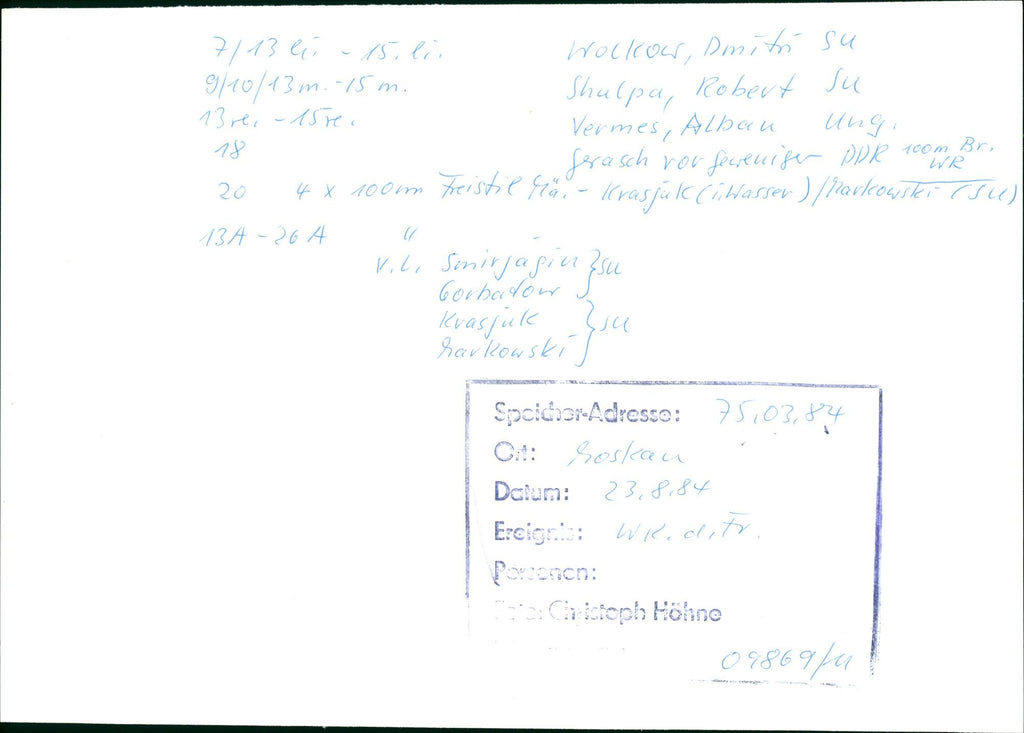 7/13 li. - 15. li. Wolkow, Dmitri SU
9/10/13 m. - 15 m. Shulpa, Robert SU
13 re. - 15 re. Vermes, Alban Ung.
18 Gerasch vor Geweniger DDR 100m Br. WR
20 4 x 100m Freistil Mä. - Krasjuk (i. Wasser) / Markowski (SU)
13A - 26A " -
v.l. Smirjagin } SU
Gorbatow
Krasjuk } SU
Markowski
Speicher-Adresse: 75.03.84
Ort: Moskau
Datum: 23.8.84
Ereignis: WK. d. Fr.
Personen:
Foto: Christoph Höhne
09869/